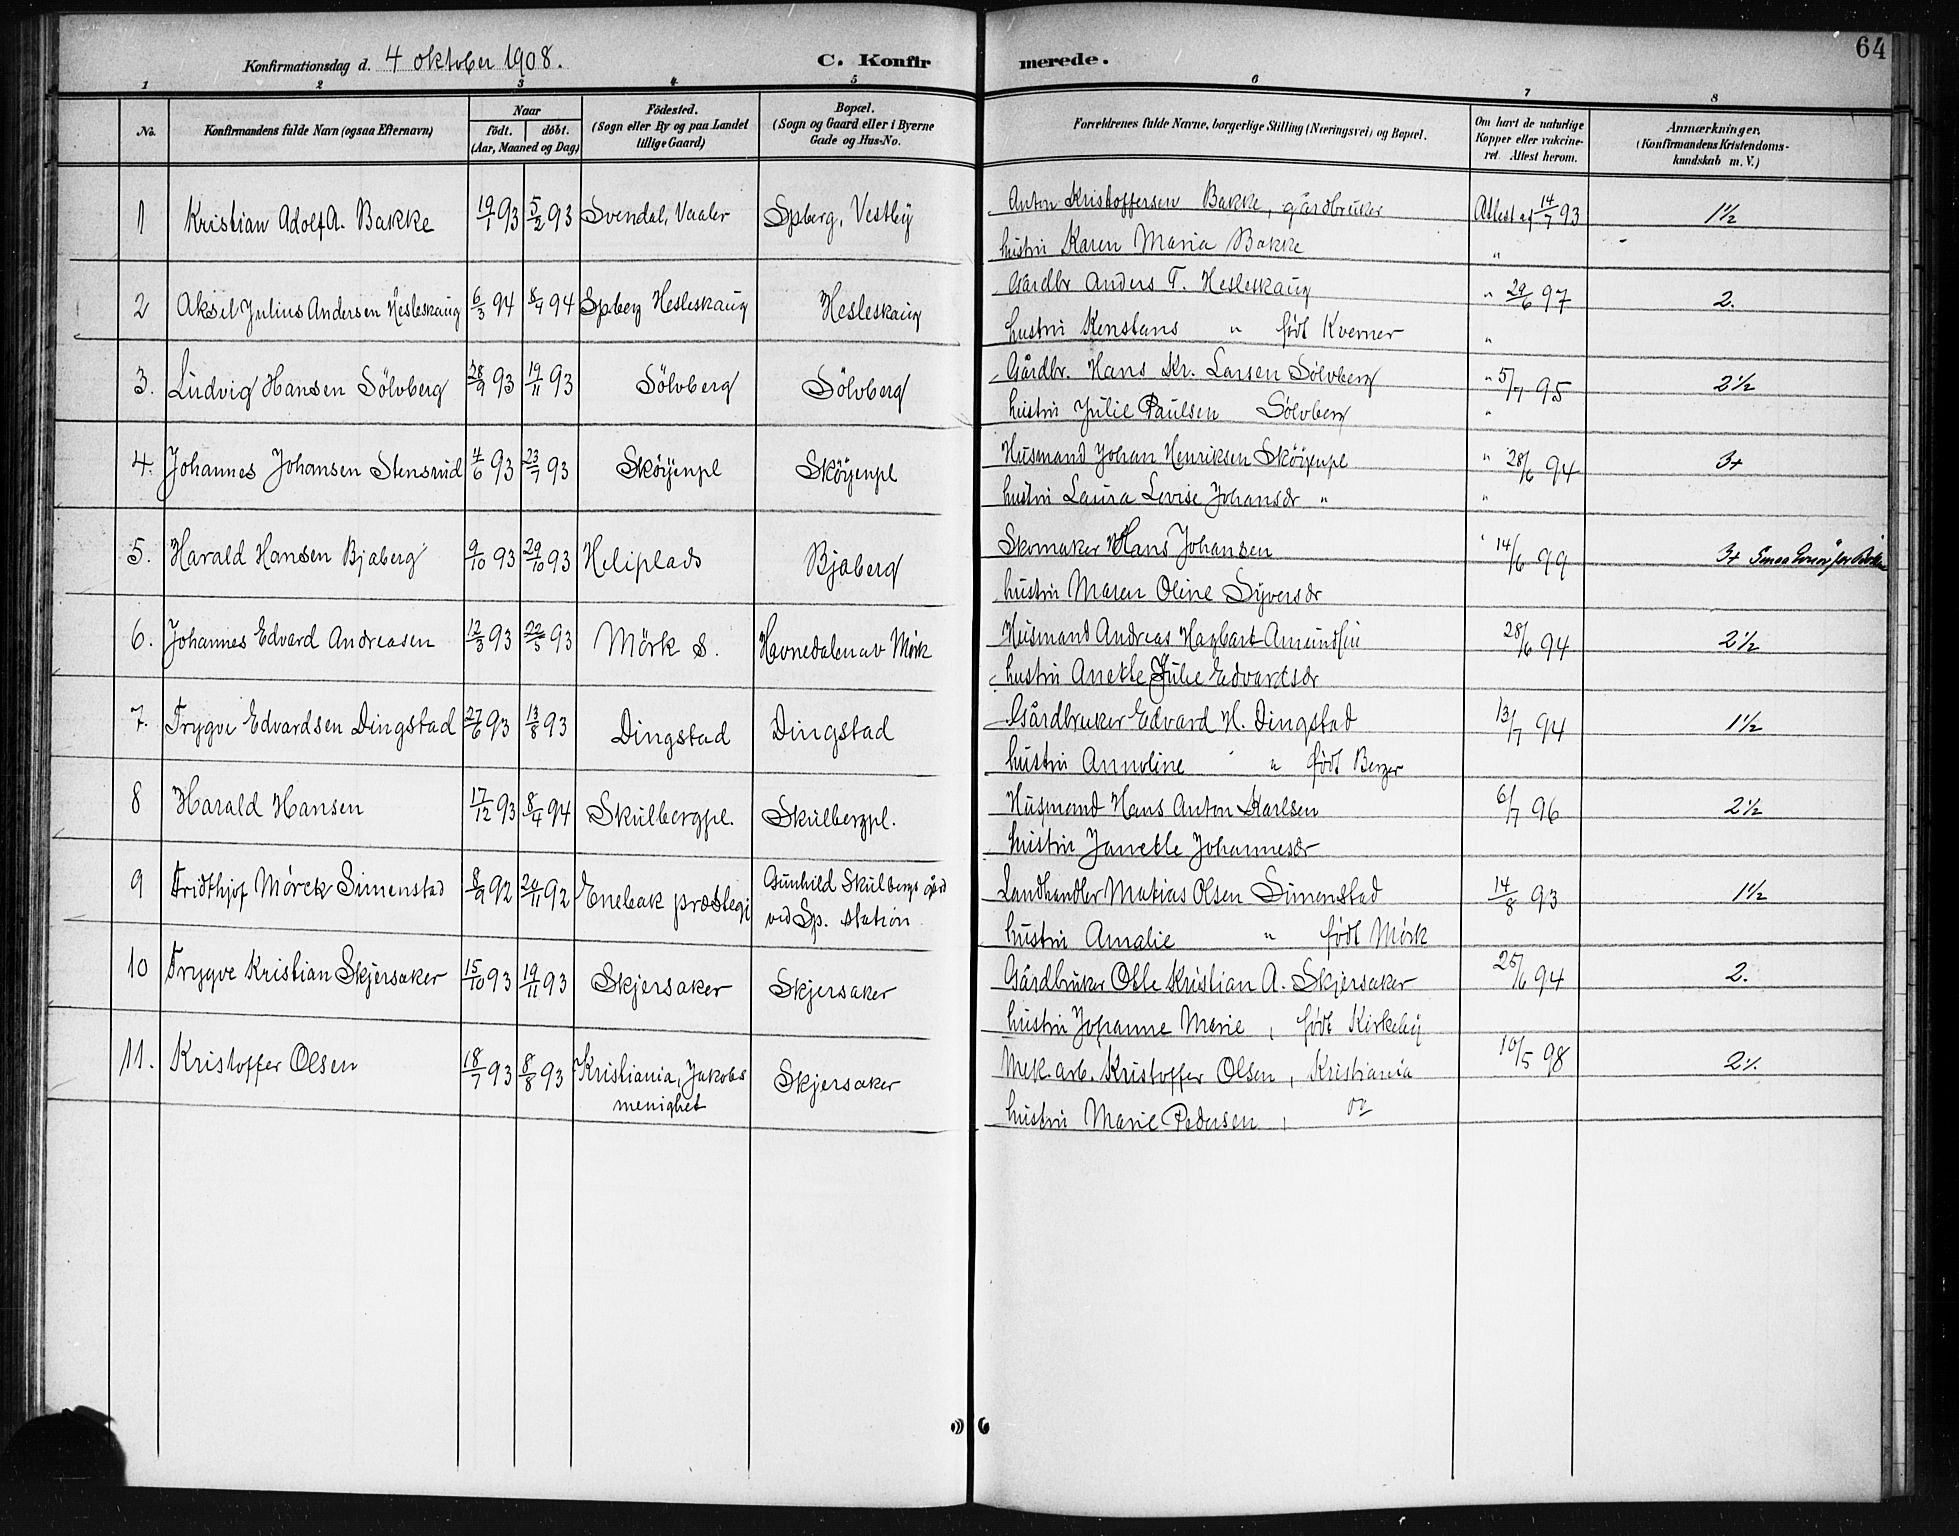 64
Konfirmationsdag d. 4 oktober 1908. C. Konfir merede.
1 2 3 4 5 6 7 8
No. Konfirmandens fulde Navn (ogsaa Efternavn) Naar født. døbt. (Aar, Maaned og Dag) Fødested. (Sogn eller By og paa Landet tillige Gaard) Bopæl. (Sogn og Gaard eller i Byerne Gade og Hus-No. Forældrenes fulde Navne, borgerlige Stilling (Næringsvei) og Bopæl. Om havt de naturlige Kopper eller vakcineret. Attest herom. Anmærkninger. (Konfirmandens Kristendomskundskab m. V.)
1 Kristian Adolf A. Bakke 19/1 93 5/2 93 Svendal, Vaaler Spberg, Vestby Anton Kristoffersen Bakke, gårdbruker Attest af 14/7 93 1½
hustru Karen Maria Bakke "
2 Aksel Julius Andersen Hesleskaug 6/3 94 8/4 94 Spberg Hesleskaug Hesleskaug Gårdbr Anders T. Hesleskaug " 29/6 97 2.
hustru Konstans " født Kverner "
3. Ludvig Hansen Sölvberg 28/9 93 19/11 93 Sölvberg Sölvberg Gårdbr. Hans Kr. Larsen Sölvberg " 5/7 95 2½
hustru Julie Paulsen Sölvberg "
4. Johannes Johansen Stensrud 4/6 93 23/7 93 Sköyenpl Sköyenpl Husmand Johan Henriksen Sköyenpl " 28/6 94 3+
hustru Laura Lovise Johansdr " "
5. Harald Hansen Bjaberg 9/10 93 29/10 93 Heliplads Bjaberg Skomaker Hans Johansen " 14/6 99 3+
hustru Maren Oline Syversdr
6. Johannes Edvard Andreasen 12/3 93 22/5 93 Mörk S. Havnedalen av Mörk Husmand Andreas Hagbart Amundsen 28/6 94 2½
hustru Anette Julie Edvardsdr
7. Trygve Edvardsen Dingstad 27/6 93 13/8 93 Dingstad Dingstad Gårdbruker Edvard H. Dingstad 13/7 94 1½
hustru Annoline " født Berger
8 Harald Hansen 17/12 93 8/4 94 Skulbergpl. Skulbergpl. Husmand Hans Anton Karlsen 6/7 96 2½
hustru Janette Johannesdr
9 Fridthjof Mörck Simenstad 8/9 92 20/11 92 Enebak præstegj Gunhild Skulbergs gård Landhandler Matias Olsen Simenstad 14/8 93 1½
vid Sp. station
hustru Amalie " født Mörk
10 Trygve Kristian Skjersaker 15/10 93 19/11 93 Skjersaker Skjersaker Gårdbruker Olle Kristian A. Skjersaker 25/6 94 2.
hustru Johanne Marie, født Kirkeby
11. Kristoffer Olsen 18/7 93 8/8 93 Kristiania, Jakobs menighet Skjersaker Mek. arb. Kristoffer Olsen, Kristiania 10/5 98
hustru Marie Pedersen,